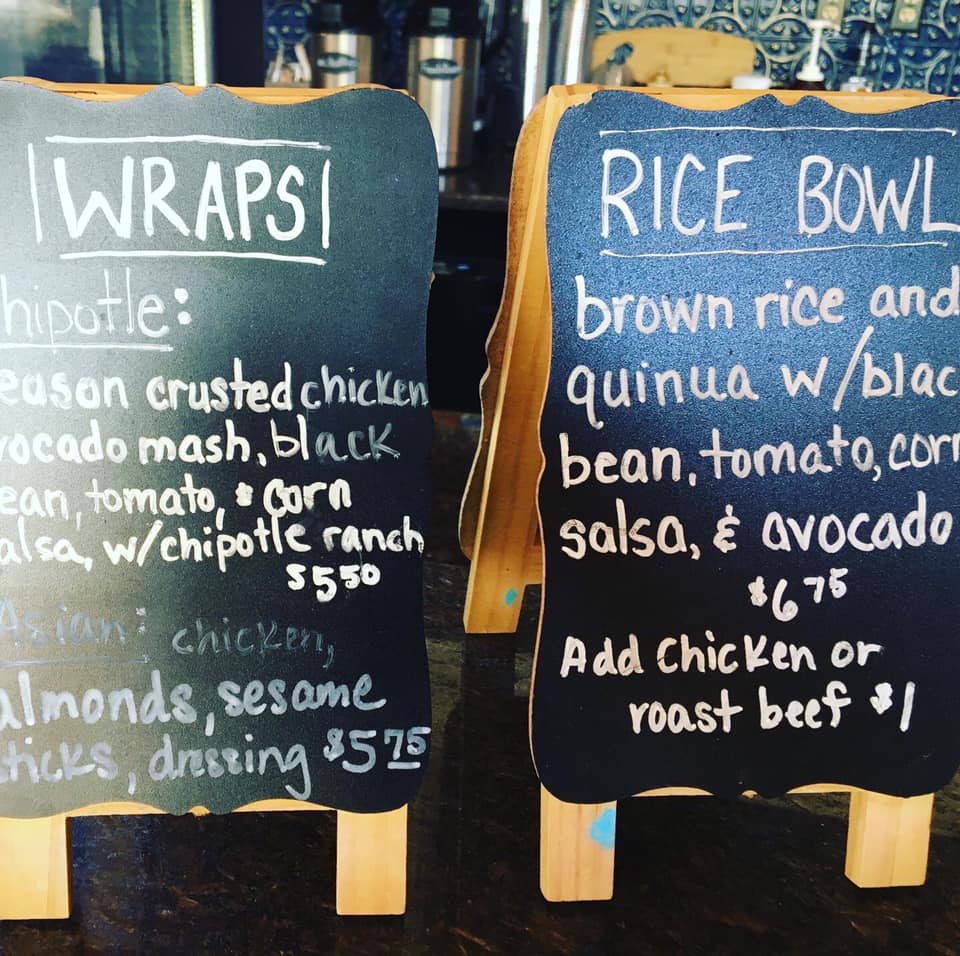 WRAPS
hipotle:
eason crusted chicken
vocado mash, black
ean, tomato, & corn
alsa, w/chipotle ranch
$5.50
Asian: chicken,
almonds, sesame
sticks, dressing $5.75
RICE BOWL
brown rice and
quinua w/blac
bean, tomato, corn
salsa, & avocado
$6.75
Add chicken or
roast beef $1